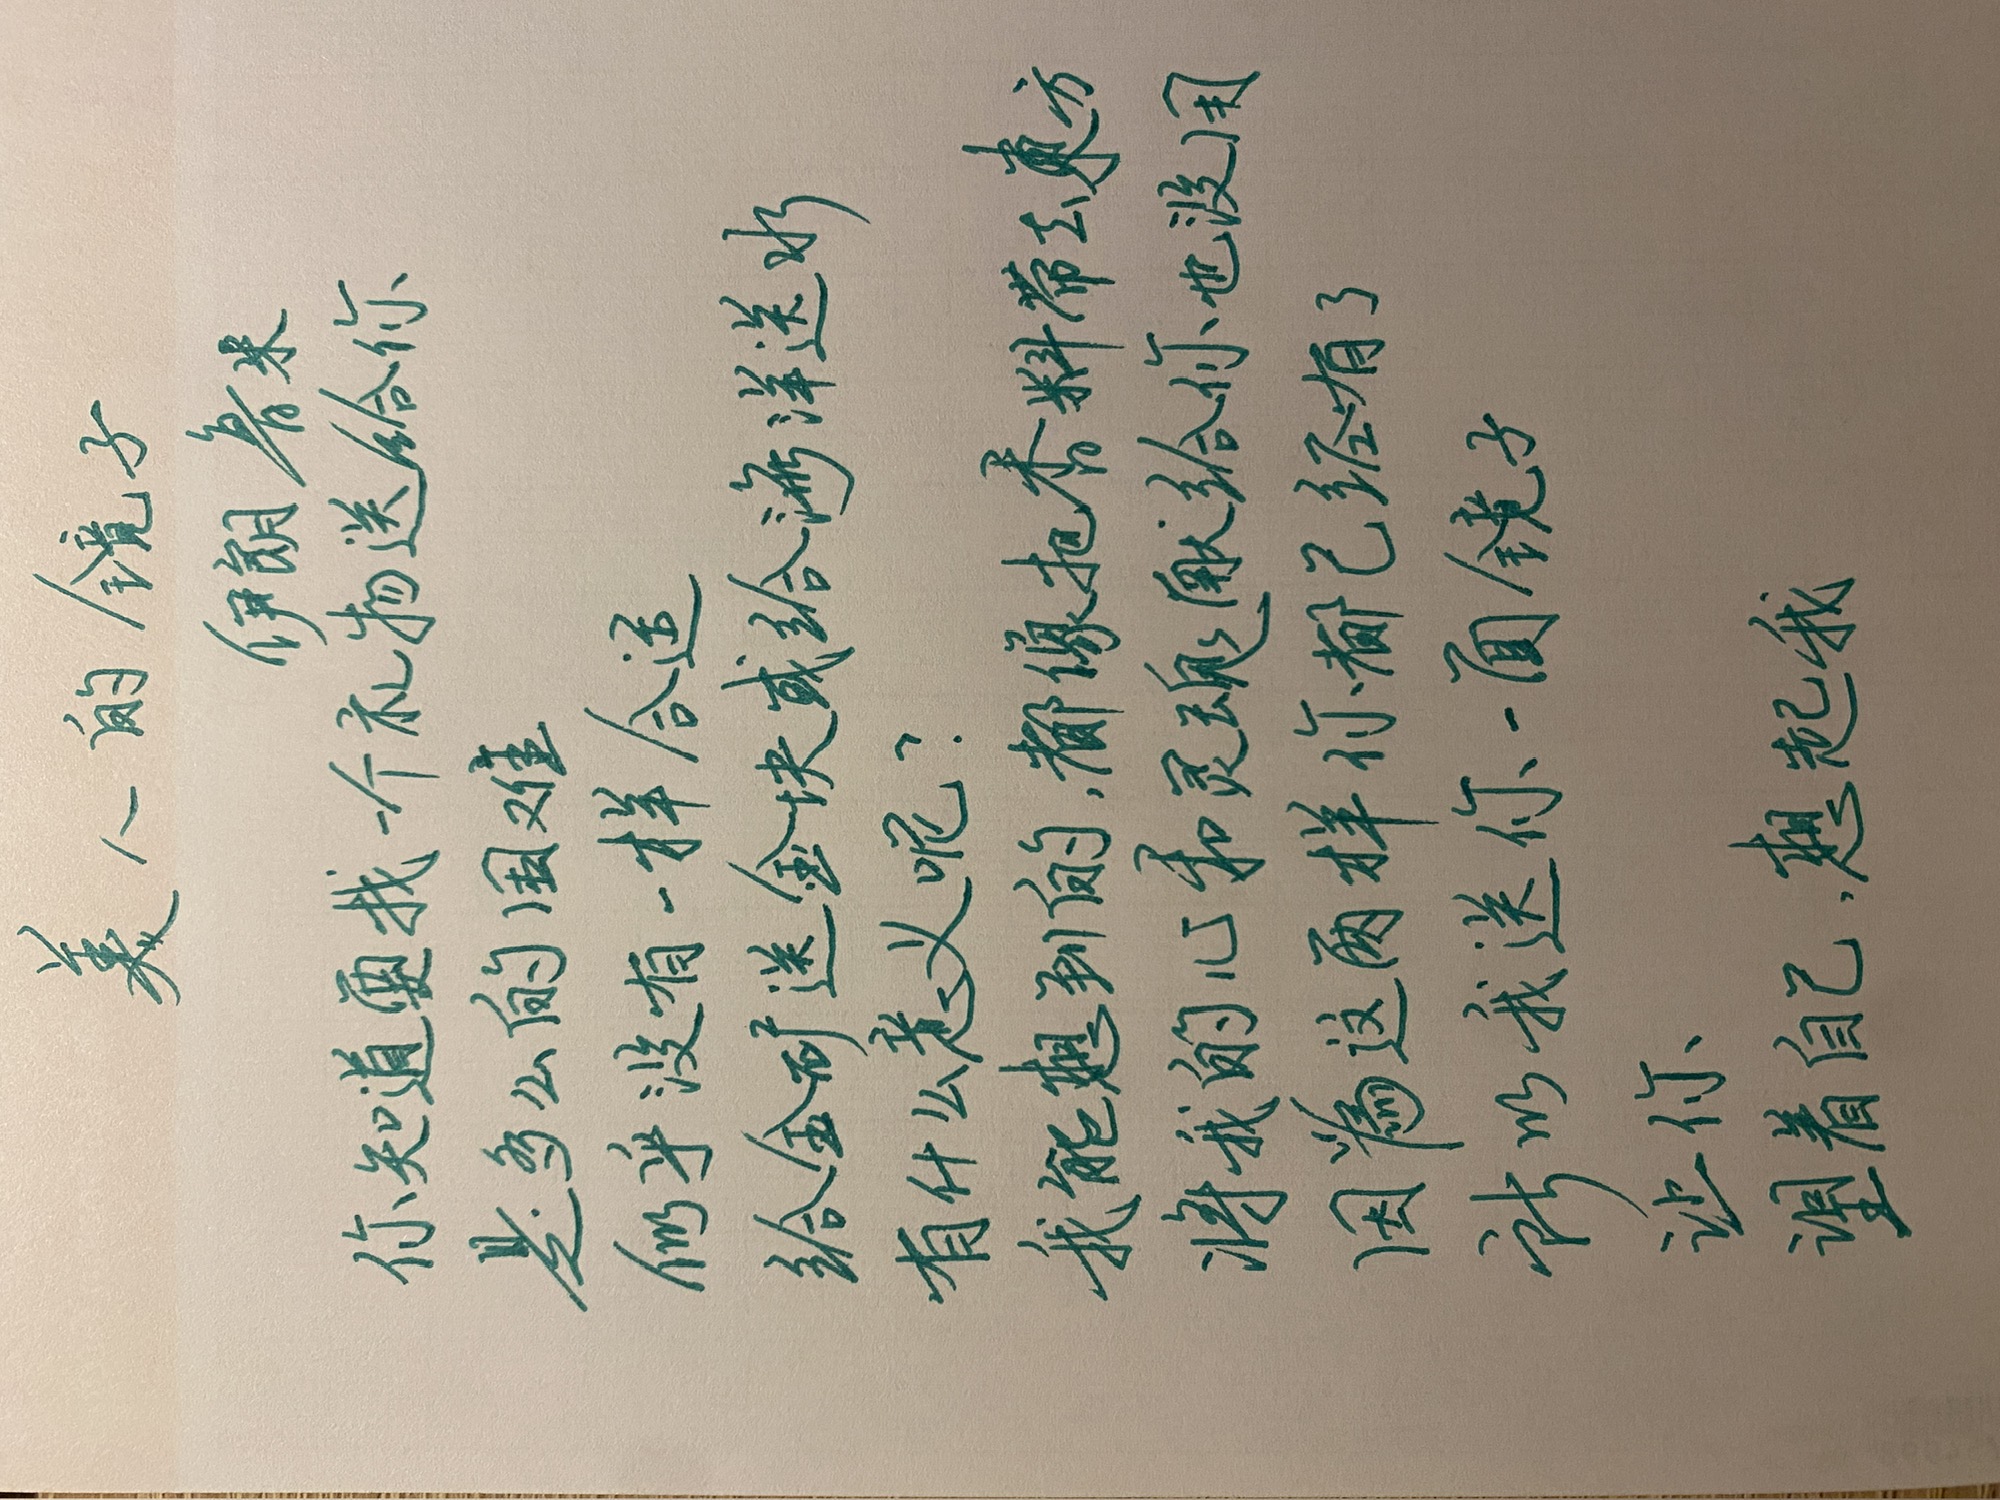 美人的镜子
伊朗 鲁米
你知道要找一个礼物送给你
是多么的困难
似乎没有一样合适
给金矿送金块或给海洋送水
有什么意义呢?
我能想到的,都像把香料带去東方
将我的心和灵魂献给你也没用
因為这两样你都已经有了
所以我送你一面镜子
让你
望着自己,想起我